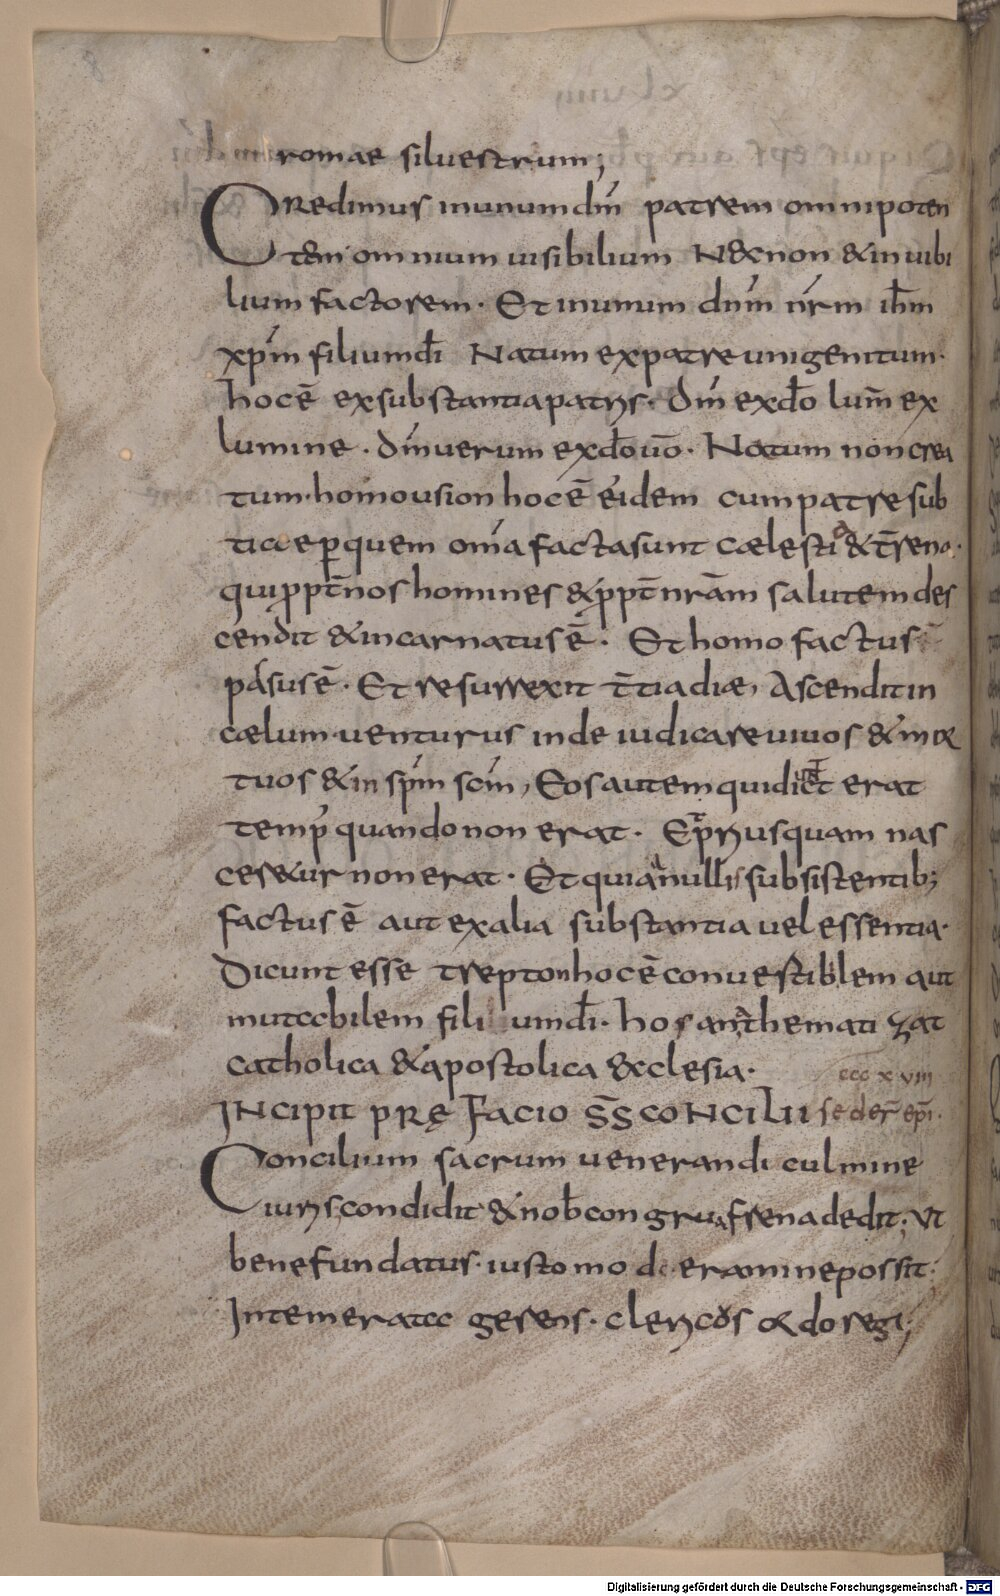 romae silvestrum;
CRedimus inunum dm̄ patrem omnipoten
tem omnium uisibilium Necnon & inuibi
lium factorem. Et inunum dnm̄ nrm̄ ihm̄
xpm̄ filium di̅ Natum expatre unigenitum.
hoc ē exsubstantia patris. dm̄ exdo̅ lum̄ ex
lumine. dm̄ uerum exdo̅ uo̅. Natum non crea
tum. homousion hoc ē eidem cum patre sub
tiae ꝑ quem om̄a facta sunt cælestia & t̄rena.
qui ꝓpt̄ nos homines & ꝓpt̄ nrām salutem des
cendit & incarnatus ē. Et homo factus
passus ē. Et resurrexit t̄tia diæ, Ascendit in
cælum uenturus inde iudicare uiuos & mor
tuos & in spm̄ scm̄, Eos autem qui dicunt erat
temp̄ quando non erat. Et priusquam nas
ceretur non erat. Et quia nullis subsistentib;
factus ē aut exalia substantia uel essentia.
Dicunt esse trepton hoc ē conuertiblem aut
mutabilem fili umdi̅. hos anathemati zat
catholica & apostolica & cclesia.
cccxviii
INCIPIT PRĘFACIO S̅S̅ CONCILII seder̄ epī.
Concilium sacrum uenerandi culmine
iuris condidit & nob̄ congrua frena dedit; Ut
bene fundatus. iusto moderamine possit.
Intemerata gerens. clericos ordo regi;